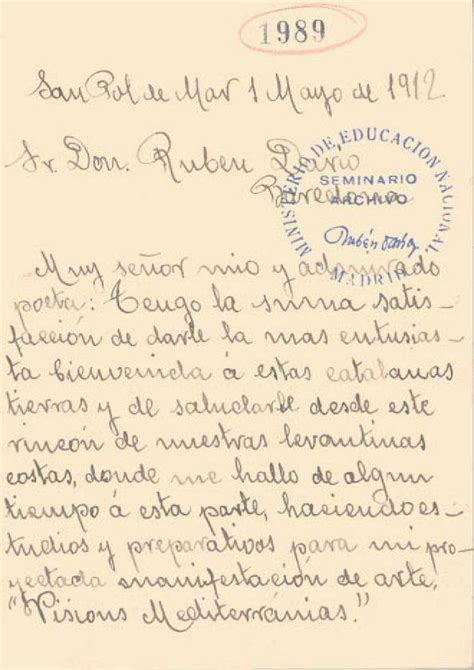 1989
San Pol de Mar 1 Mayo de 1912
Sr. Don. Ruben Dario
Barcelona
MINISTERIO DE EDUCACION NACIONAL
SEMINARIO
ARCHIVO
Rubén Darío
MADRID
Muy señor mio y admirado
poeta: Tengo la suma satis-
facción de darle la mas entusias-
ta bienvenida á estas catalanas
tierras y de saludarle desde este
rincón de nuestras levantinas
costas, donde me hallo de algun
tiempo á esta parte, haciendo es-
tudios y preparativos para mi pro-
yectada manifestación de arte,
"Visions Mediterránias."